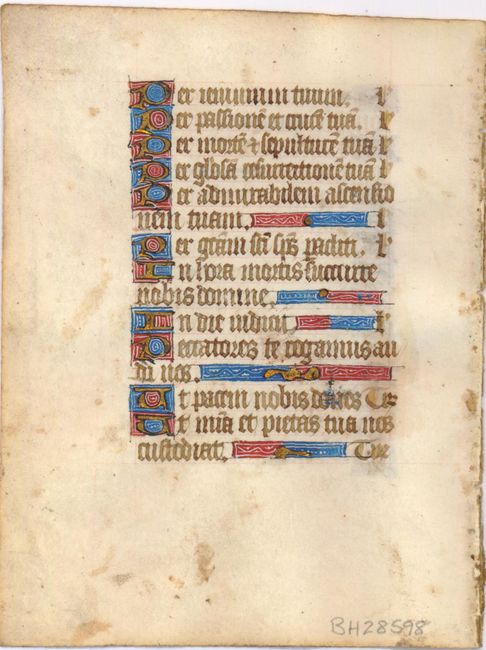 Per ieiunium tuum. l'
Per passionē et crucē tuā. l'
Per mortē ⁊ sepulturē tuā l'
Per glosā resurrectionē tuā l'
Per admirabilem ascensio
nem tuam. l'
Per grām sc̄i sp̄s pacliti. l'
In hora mortis succurre
nobis domine.
In die iudicii l'
Peccatores te rogamus au
di nos.
Ut pacem nobis dones Te
Ut mīa et pietas tua nos
custodiat. Te
BH28598